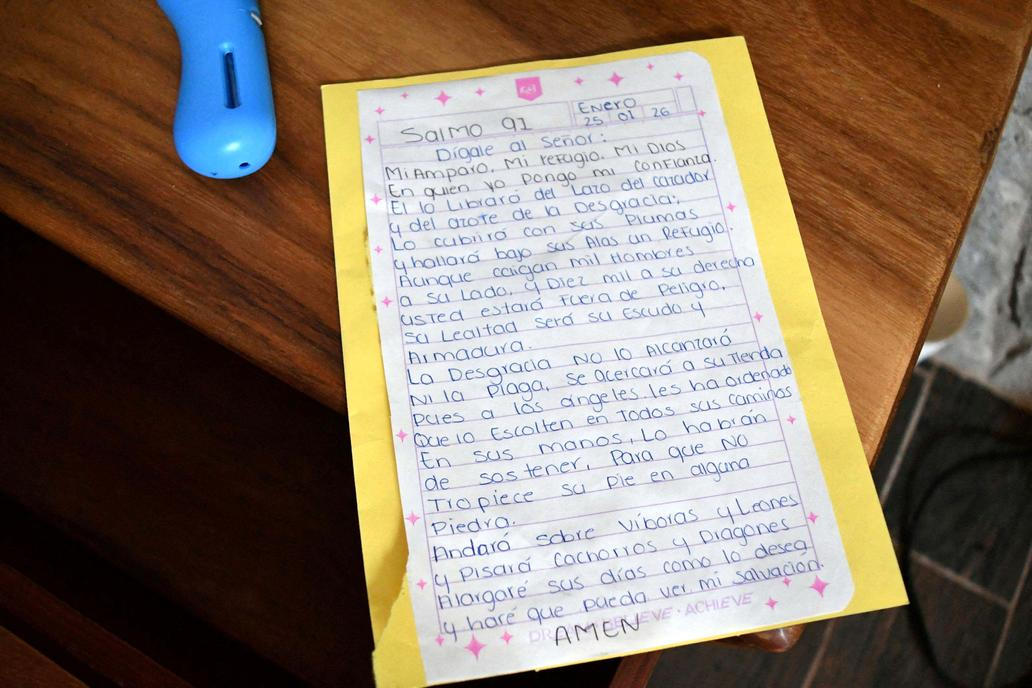 Salmo 91
Enero
25 01 26
Dígale al Señor:
Mi Amparo. Mi refugio. Mi Dios
En quien yo Pongo mi confianza.
El lo Librará del Lazo del cazador
y del azote de la Desgracia;
Lo cubrirá con sus Plumas
y hallará bajo sus Alas un Refugio.
Aunque caigan mil Hombres
a su Lado y Diez mil a su derecha
usted estará Fuera de Peligro,
su Lealtad será su Escudo y
Armadura.
La Desgracia No lo Alcanzará
Ni la Plaga, se acercará a su Tienda
pues a los ángeles les ha ordenado
Que lo Escolten en Todos sus caminos
En sus manos, Lo habrán
de sostener, Para que No
Tropiece su Pie en alguna
Piedra.
Andará sobre Víboras y Leones
y Pisará Cachorros y Dragones
Alargaré sus días como lo desea
y haré que pueda ver mi salvación.
BELIEVE · ACHIEVE
AMEN